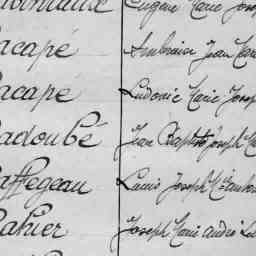 Eugène Marie Josep
acapé Ambroise Jean Mari
acapé Ludovic Marie Josep
adoubé Jean Baptiste Joseph
affegeau Louis Joseph
ahier Joseph Marie André